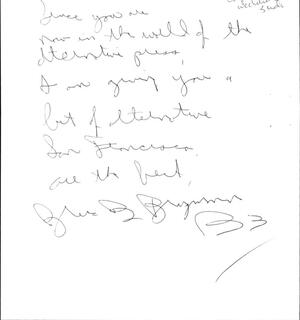 Since you are
now in the world of the
alternative press,
I am giving you a
bit of alternative
San Francisco.
all the best,
Bruce B. Brugmann
B3